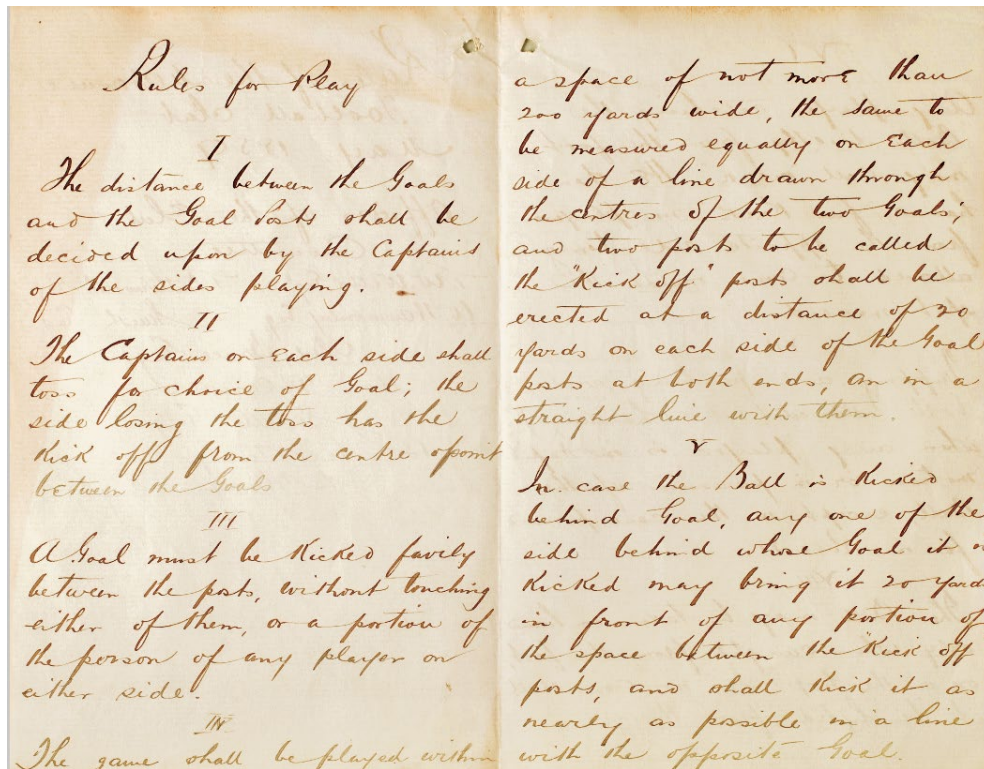 Rules for Play
I
The distance between the Goals
and the Goal Posts shall be
decided upon by the Captains
of the sides playing.
II
The Captains on Each side shall
toss for choice of Goal; the
side losing the toss has the
Kick off from the centre opoint
between the Goals
III
A Goal must be Kicked fairly
between the posts, without touching
either of them, or a portion of
the person of any player on
either side.
IV
The game shall be played within
a space of not more than
200 yards wide, the same to
be measured equally on Each
side of a line drawn through
the centres of the two Goals;
and two posts to be called
the "Kick off" posts shall be
erected at a distance of 20
yards on each side of the Goal
posts at both ends, an in a
straight line with them.
V
In case the Ball is Kicked
behind Goal, any one of the
side behind whose Goal it is
Kicked may bring it 20 yards
in front of any portion of
the space between the "Kick off
posts, and shall Kick it as
nearly as possible in a line
with the opposite Goal.